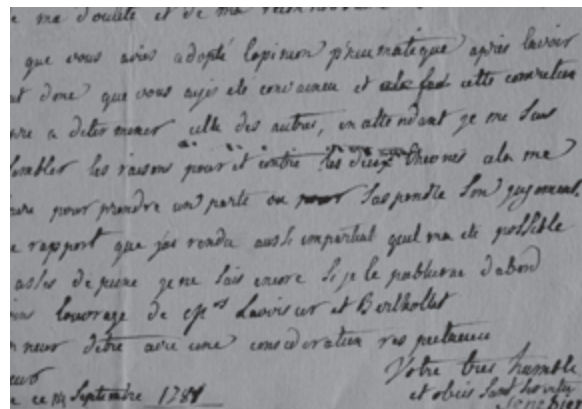 e ma docilité et de ma reconnoi
que vous aviés adopté lopinion pneumatique après lavoir
t donc que vous ayés eté convaincu et cette conviction
re a determiner celle des autres, en attendant je me suis
sembler les raisons pour et contre les deux theories ala me
ure pour prendre un parti ou suspendre son jugement.
e rapport que jai rendu aussi impartial quil ma eté possible
assés de peine je ne sais encore si je le publierai dabord
ins louvrage de Mrs Lavoisier et Berthollet
nneur dêtre avec une consideration respectueuse
Votre tres humble
eur et obeissant serviteur
e ce 14 Septembre 1787 Senebier